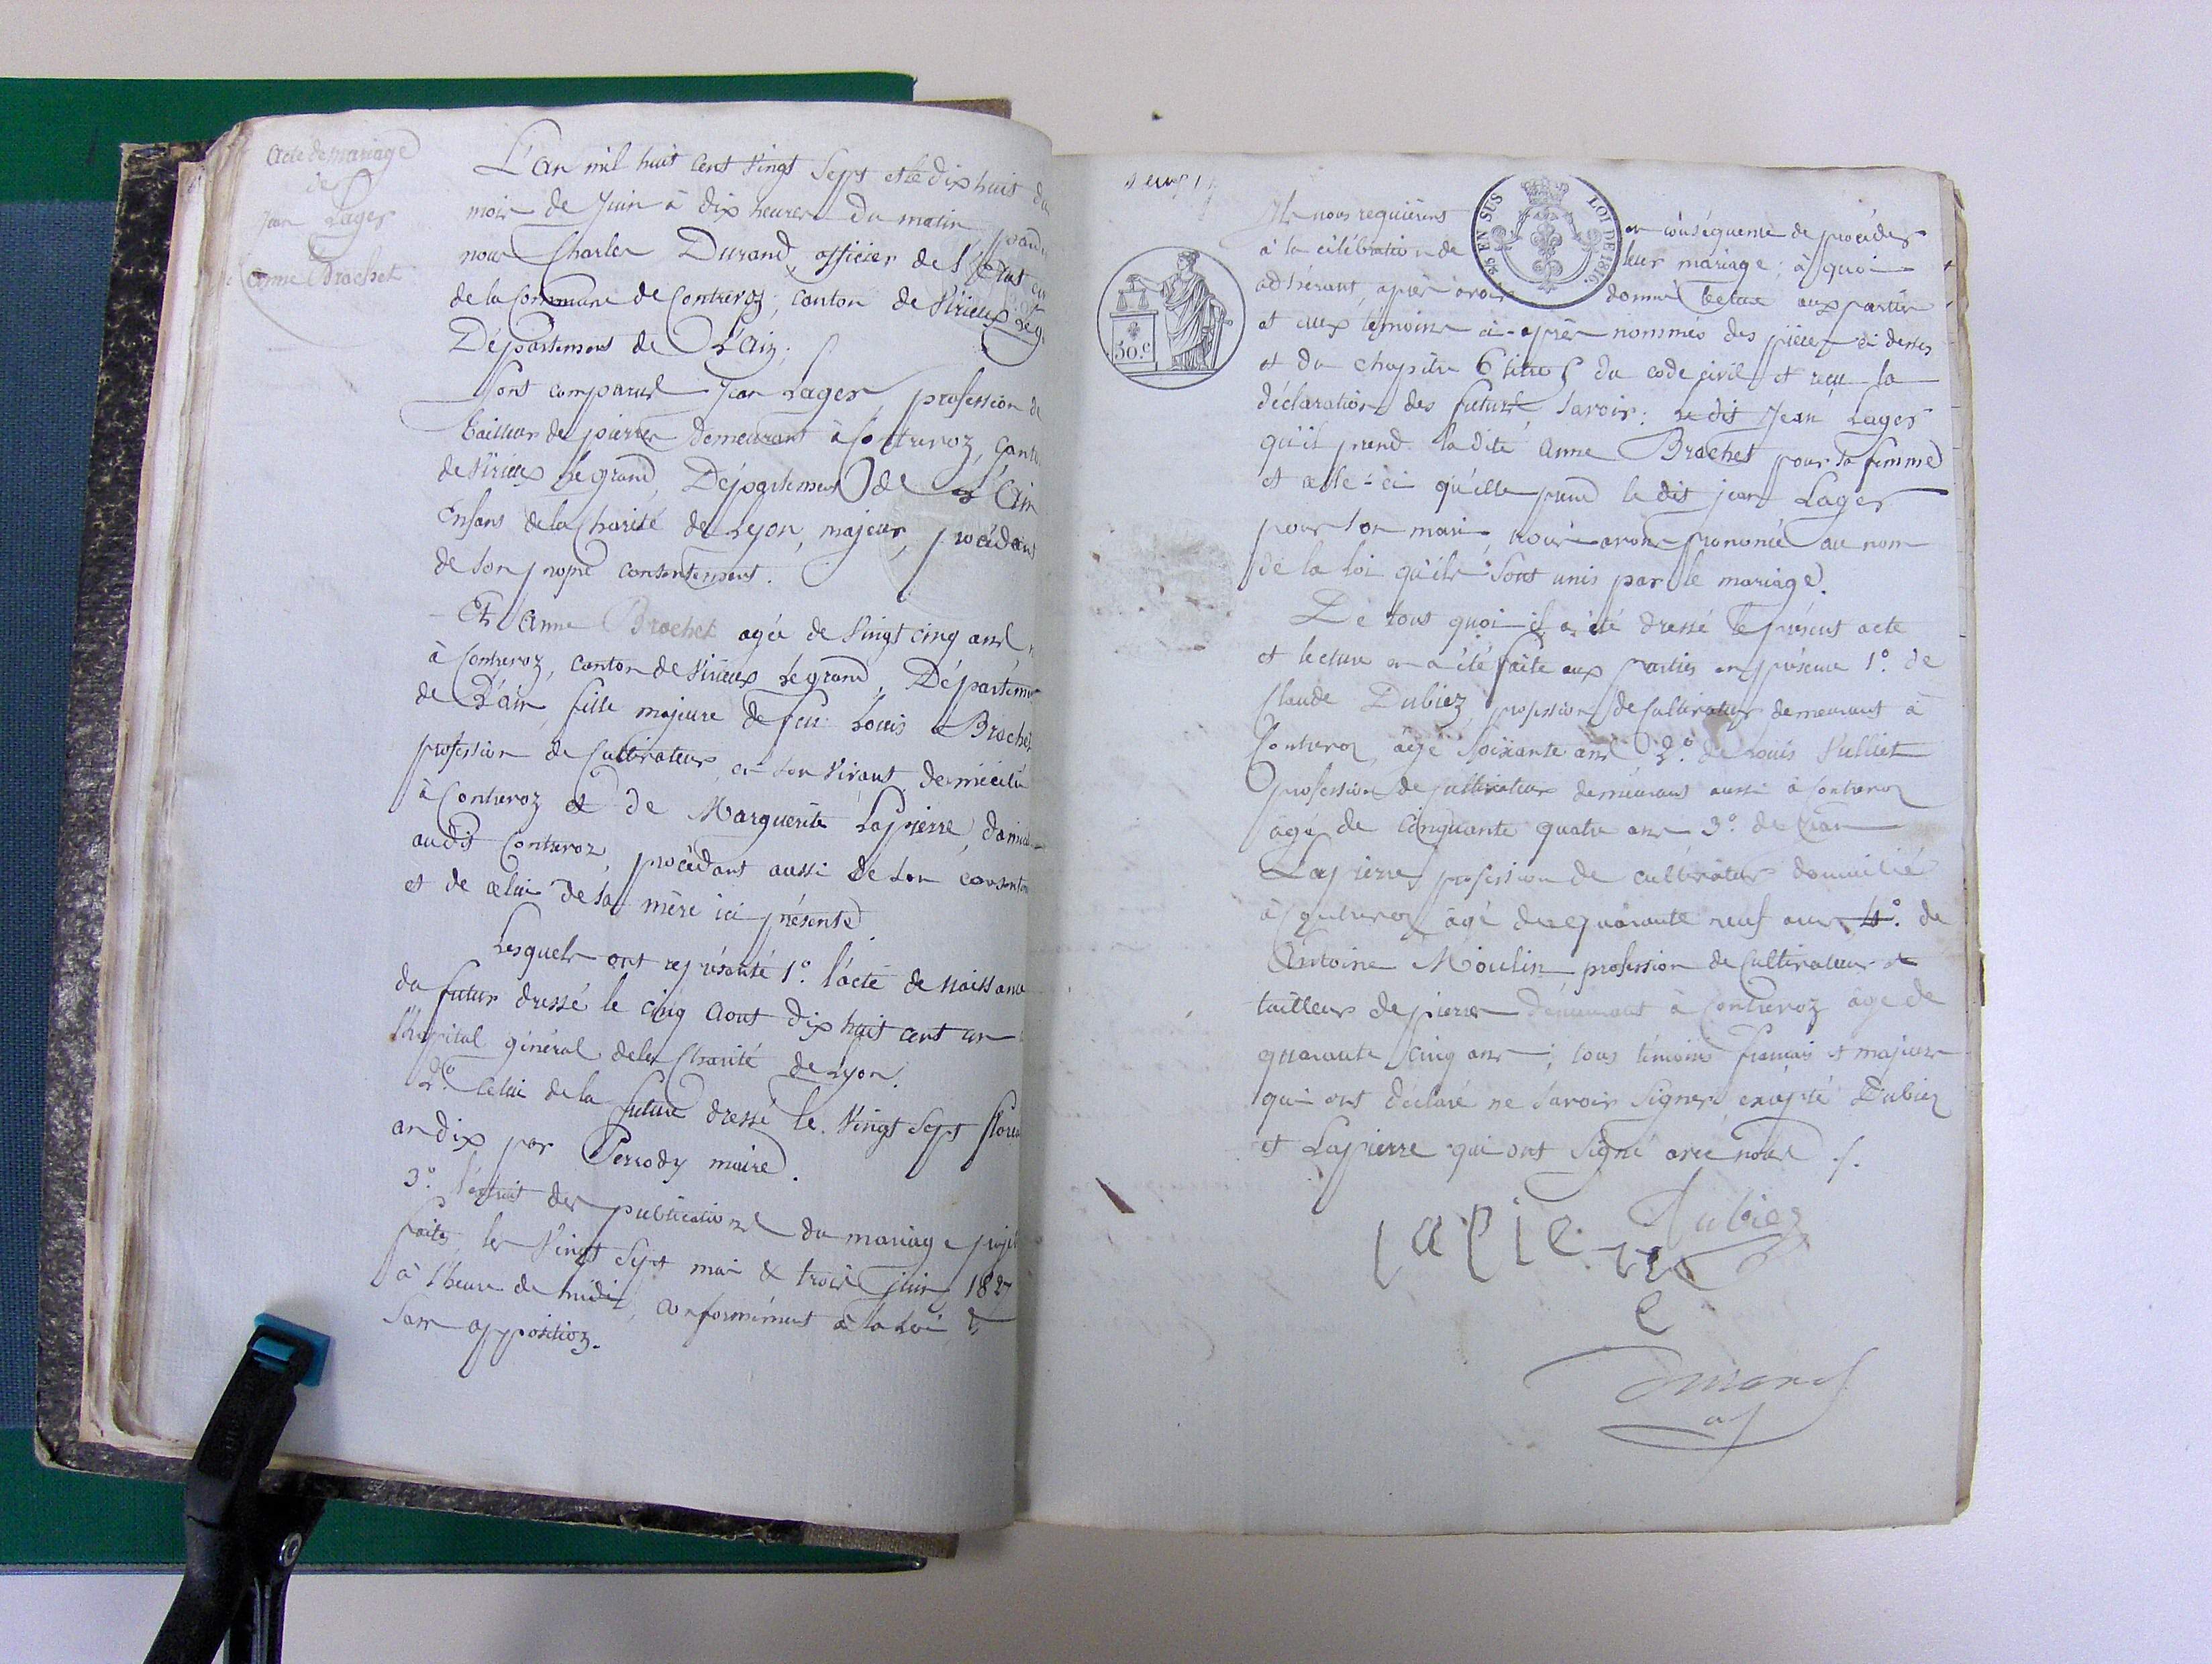 Acte de mariage
de
Jean Lager
Anne Brachet
L'an mil huit cent vingt Sept et le dix huit du
mois de Juin à dix heures du matin pard
nous Charles Durand, officier de l'Etat
de la Commune de Contrevoz, canton de Virieux Leg
Département de L'Ain;
Sont comparus Jean Lager, profession de
tailleur de pierres demeurant à Contrevoz, Cant
de Virieux Legrand, Département de L'Ain
Enfans de la Charité de Lyon, majeur, procédant
de son propre consentement.
Et Anne Brachet agée de vingt cinq ans
à Contrevoz, canton de Virieux Legrand, Départeme
de L'ain, fille majeure de feu Louis Brachet
profession de Cultivateur, en son vivant domicilié
à Contrevoz et de Marguerite Lapierre, domici
audit Contrevoz, procédant aussi de son consente
et de celui de sa mère ici présente
Lesquels ont représenté 1º. l'acte de naissance
du futur dressé le cinq Aout dix huit cent un
l'hopital général de la Charité de Lyon.
2º. Celui de la future dressé le Vingt Sept flor
an dix par Perrody maire.
3º. l'extrait des publications du mariage proje
faites les Vingt Sept mai & trois juin 1827
à l'heure de midi, conformément à la Loi &
sans opposition.
Ils nous requièrent en conséquence de procéder
à la célébration de leur mariage; à quoi
adhérant, après avoir donné lecture aux parties
et aux témoins ci-après nommés des pièces ci dessus
et du chapitre 6 titre 5 du code civil et reçu la
déclaration des futurs, savoir: le dit Jean Lager
qu'il prend la dite Anne Brachet pour sa femme
et celle-ci qu'elle prend le dit jean Lager
pour son mari, nous avons prononcé au nom
de la loi qu'ils sont unis par le mariage.
De tout quoi il a été dressé le présent acte
et lecture en a été faite aux parties en présence 1º. de
Claude Dubiez, profession de Cultivateur demeurant à
Contrevoz, âgé soixante ans 2º. de Louis Vulliet
profession de cultivateur demeurant aussi à Contrevoz
âgé de cinquante quatre ans 3º. de
Lapierre profession de cultivateur domicilié
à Contrevoz âgé de quarante neuf ans 4º. de
Antoine Moulin profession de Cultivateur et
tailleur de pierres demeurant à Contrevoz âgé de
quarante cinq ans; tous témoins français et majeurs
qui ont déclaré ne savoir signer, excepté Dubiez
et Lapierre qui ont signé avec nous ./.
Dubiez
lapierre
Durand
EN SUS
LOI DE 1816.
50.c